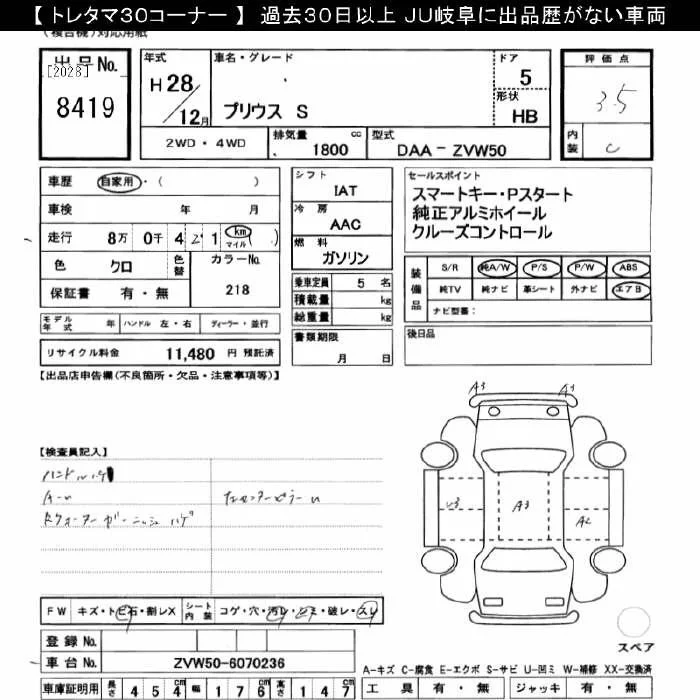 【 トレタマ30コーナー 】 過去30日以上 JU岐阜に出品歴がない車両
(複合機)対応用紙
出品No.
[2028]
8419
年式
H 28/12月
車名・グレード
プリウス S
ドア
5
形状
HB
評価点
3.5
内装
C
2WD・4WD
排気量
1800 cc
型式
DAA-ZVW50
車歴 自家用・( )
車検 年 月
走行 8万 0千 4 2 1 km マイル ( )
色 クロ
色替
カラーNo.
218
保証書 有・無
シフト
IAT
冷房
AAC
燃料
ガソリン
乗車定員 5 名
積載量 kg
総重量 kg
書類期限
月 日
セールスポイント
スマートキー・Pスタート
純正アルミホイール
クルーズコントロール
装備品
S/R 純A/W P/S P/W ABS
純TV 純ナビ 革シート 外ナビ エアB
ナビ型番:
後日品
モデル年式 年 ハンドル 左・右 ディーラー・並行
リサイクル料金 11,480 円 預託済
【出品店申告欄(不良箇所・欠品・注意事項等)】
【検査員記入】
ハンドルハゲ
A-u
Rクォーターガーニッシュ ハゲ
A3 A1
U3 A3 A2
FW キズ・トビ石・割レX
シート内装 コゲ・穴・汚レ・シミ・破レ・スレ
登録No.
車台No. ZVW50-6070236
車庫証明用 長さ 4 5 4 cm 幅 1 7 6 cm 高さ 1 4 7 cm
スペア
A-キズ C-腐食 E-エクボ S-サビ U-凹ミ W-補修 XX-交換済
工具 有・無 ジャッキ 有・無